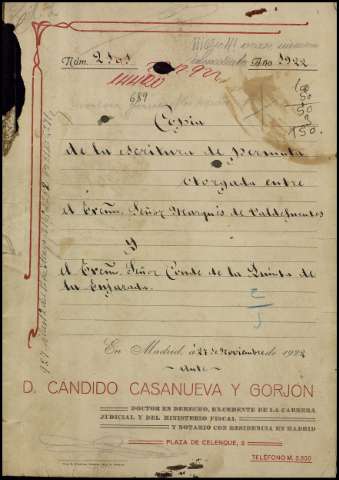 Núm. 2101 Año 1922
689
Copia
de la escritura de permuta
otorgada entre
el Excmo. Señor Marqués de Valdefuentes
y
el Excmo. Señor Conde de la Quinta de
la Enjarada.
En Madrid, á 27 de Noviembre de 1922
Ante
D. CANDIDO CASANUEVA Y GORJÓN
DOCTOR EN DERECHO, EXCEDENTE DE LA CARRERA
JUDICIAL Y DEL MINISTERIO FISCAL
Y NOTARIO CON RESIDENCIA EN MADRID
PLAZA DE CELENQUE, 3
TELÉFONO M. 5.500